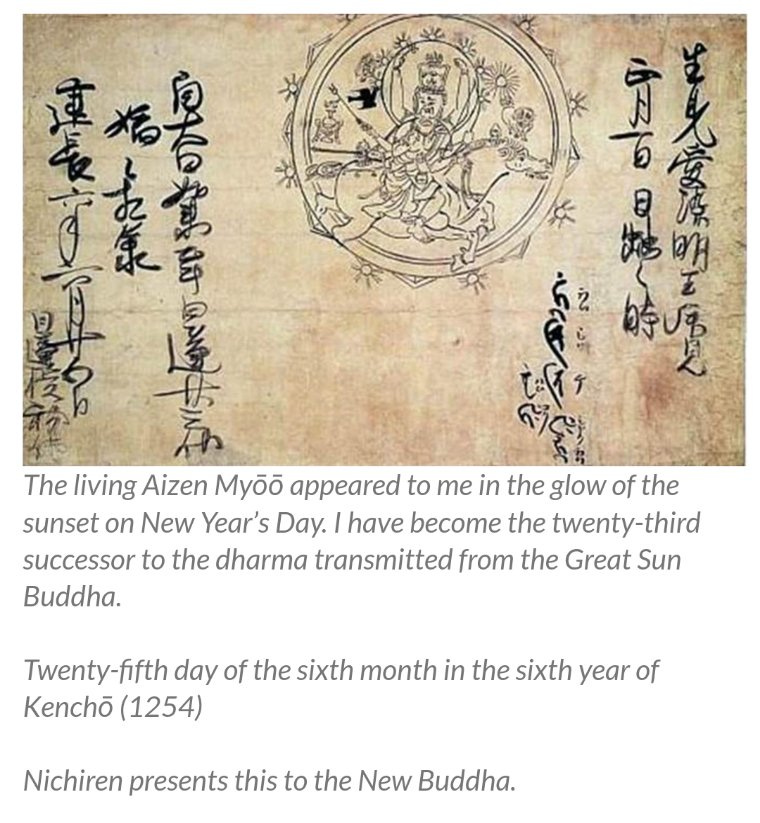 生身愛染明王拝見
正月一日日蝕之時
自大日如来至日蓮廿三代
嫡々相承
建長六年六月廿五日
日蓮授新仏
The living Aizen Myōō appeared to me in the glow of the
sunset on New Year’s Day. I have become the twenty-third
successor to the dharma transmitted from the Great Sun
Buddha.
Twenty-fifth day of the sixth month in the sixth year of
Kenchō (1254)
Nichiren presents this to the New Buddha.